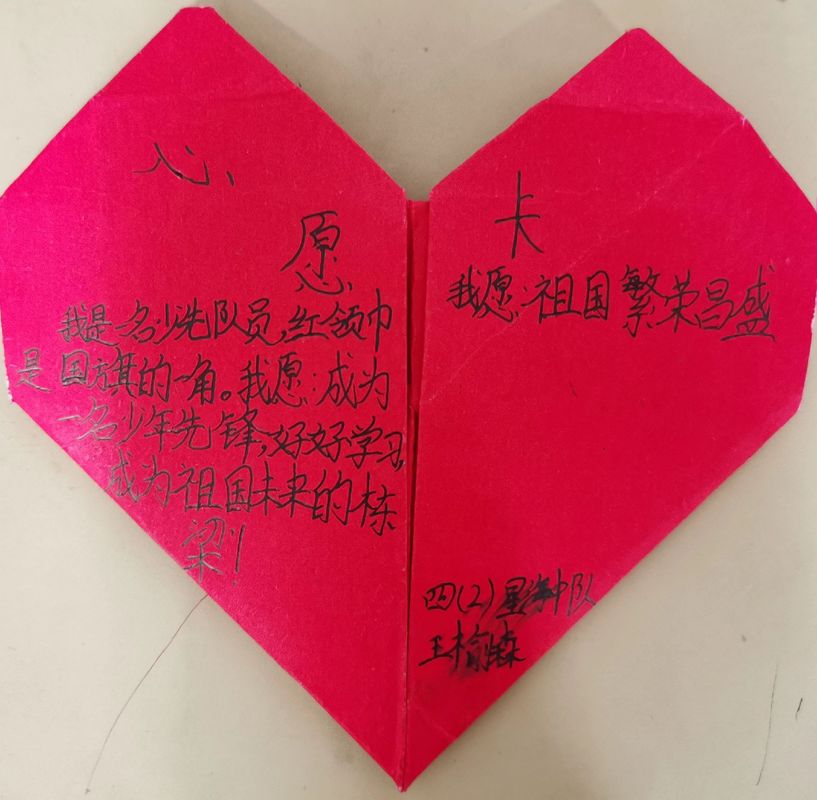 心
愿
我是名少先队员,红领巾
是国旗的一角。我愿:成为
一名少年先锋,好好学习,
成为祖国未来的栋
梁!
卡
我愿:祖国繁荣昌盛
四(2)星海中队
王榆森